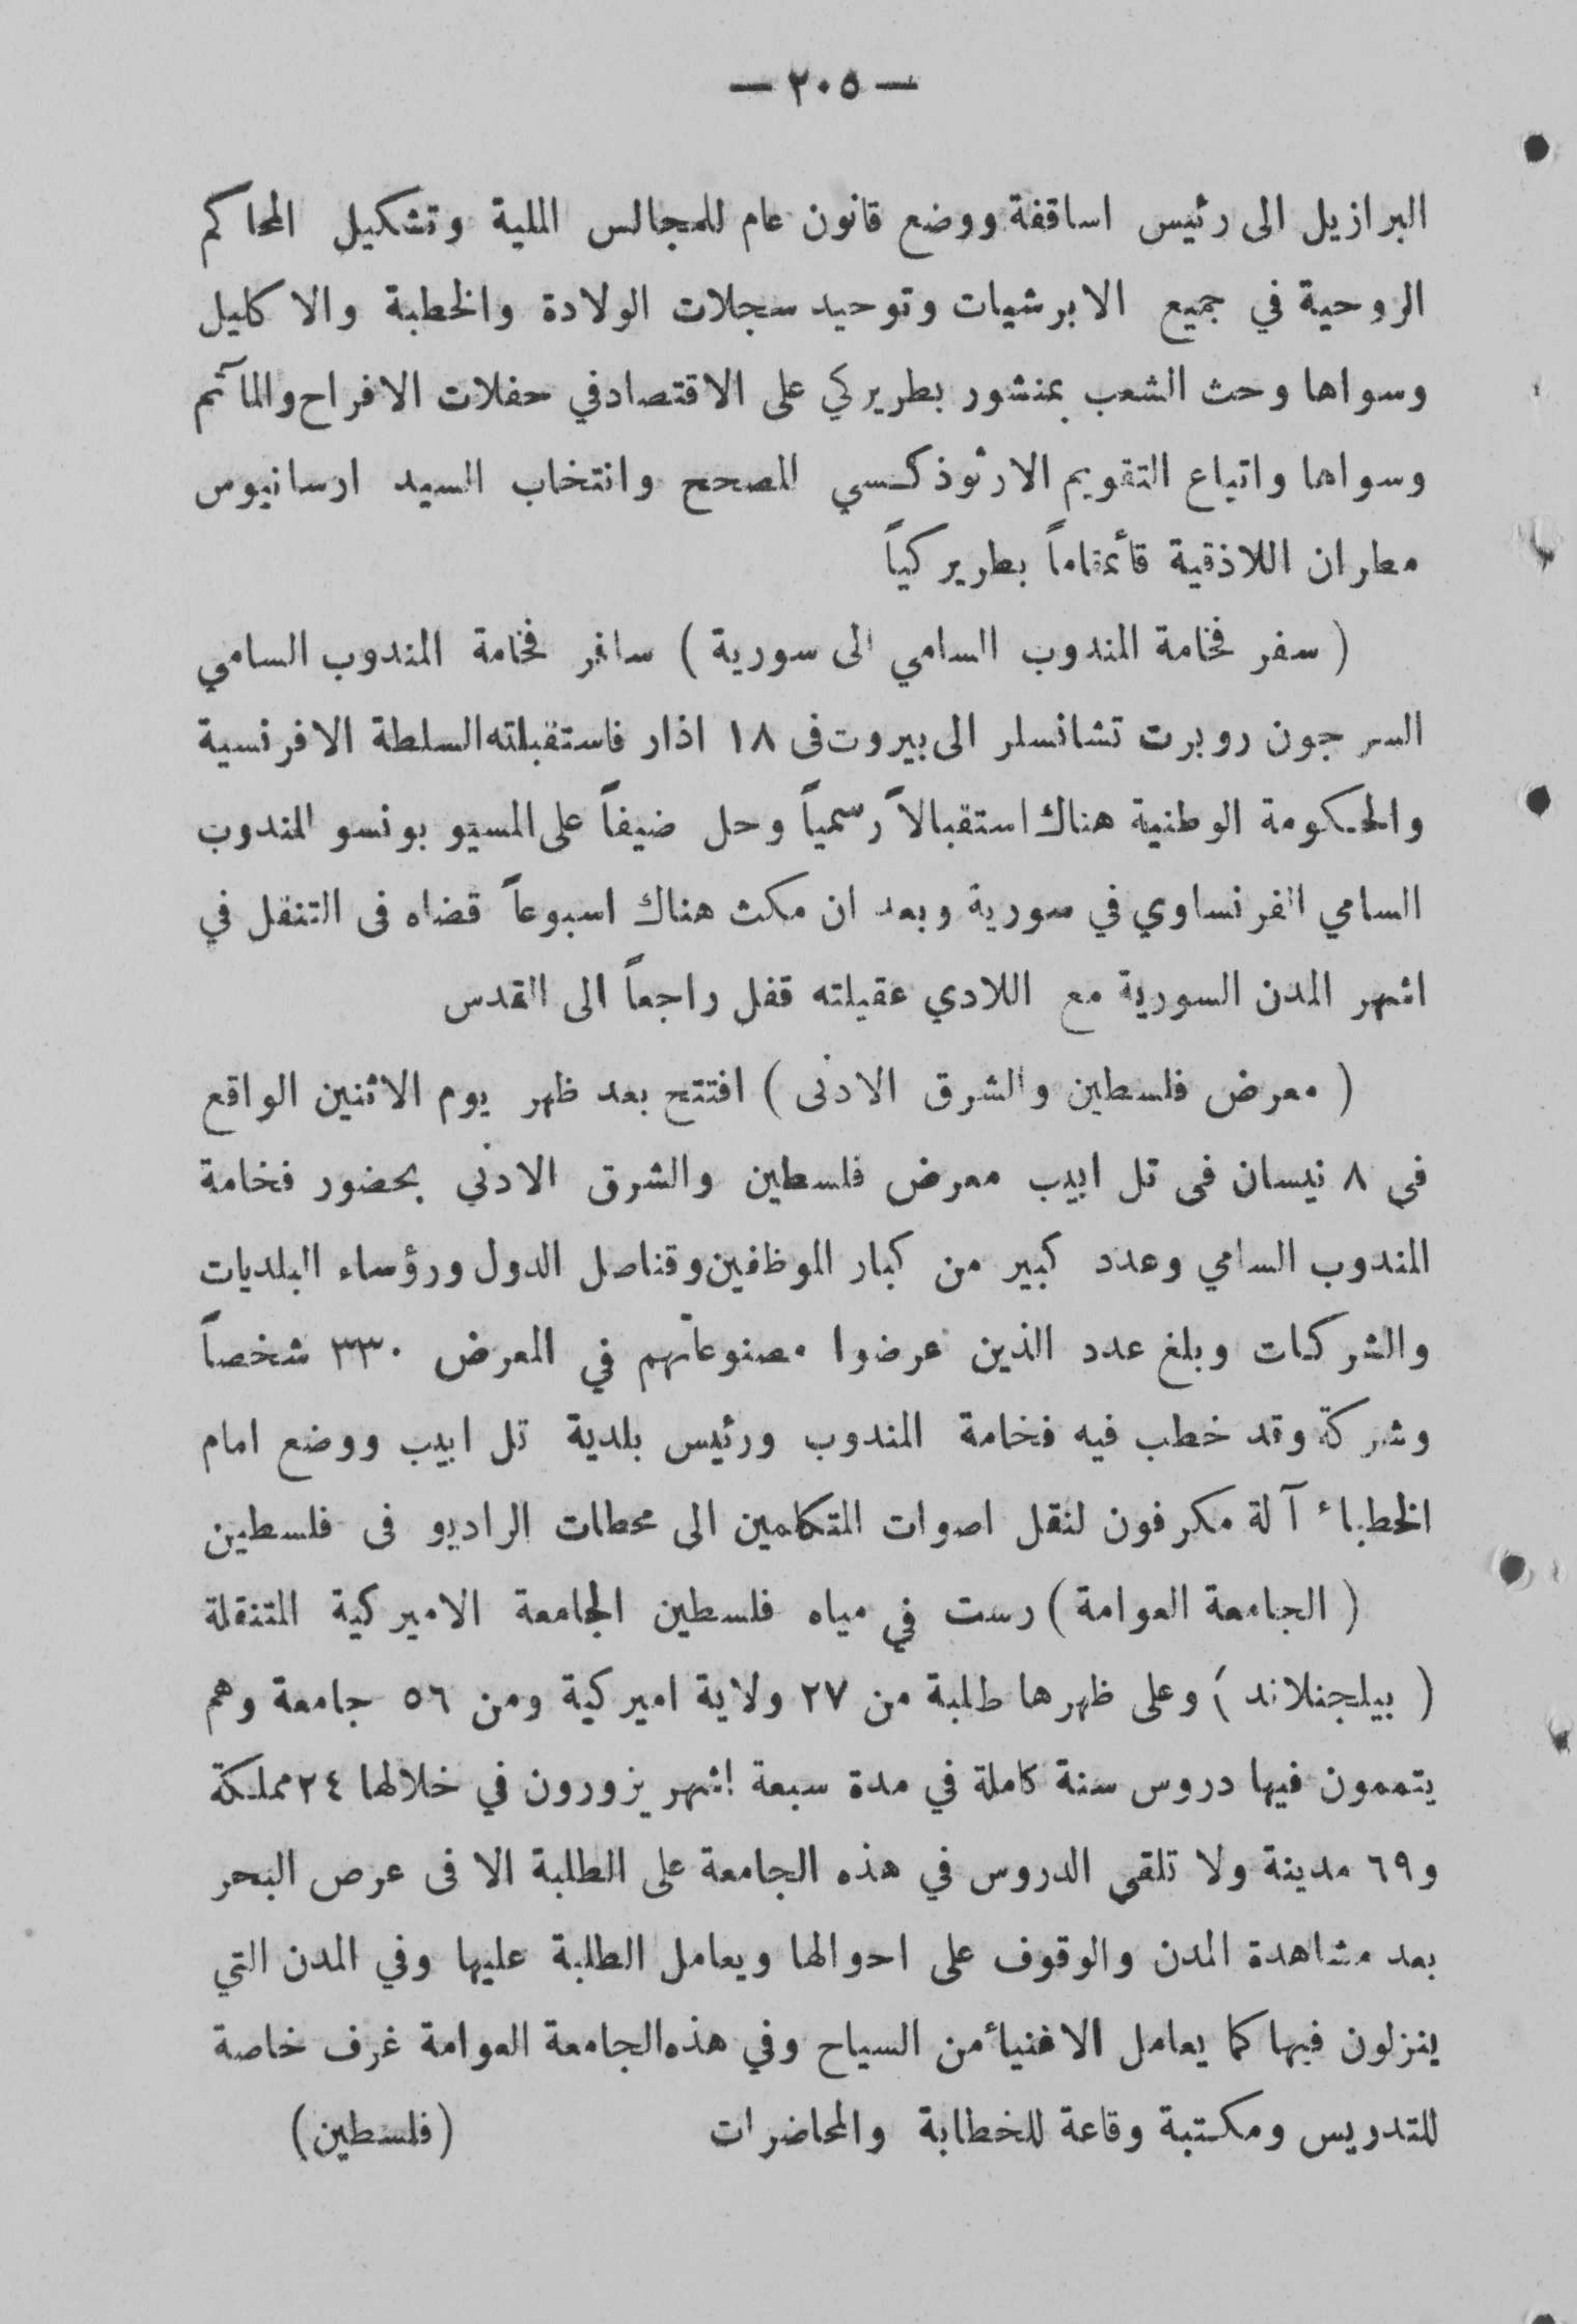 — ٢٠٥ —
البرازيل الى رئيس اساقفة ووضع قانون عام للمجالس الملية وتشكيل المحاكم
الروحية في جميع الابرشيات وتوحيد سجلات الولادة والخطبة والاكليل
وسواها وحث الشعب بمنشور بطريركي على الاقتصاد في حفلات الافراح والمآتم
وسواها واتباع التقويم الارثوذكسي المصحح وانتخاب السيد ارسانيوس
مطران اللاذقية قأئمقاماً بطريركياً
( سفر فخامة المندوب السامي الى سورية ) سافر فخامة المندوب السامي
السر جون روبرت تشانسلر الى بيروت فى ١٨ اذار فاستقبلته السلطة الافرنسية
والحكومة الوطنية هناك استقبالاً رسمياً وحل ضيفاً على المسيو بونسو المندوب
السامي الفرنساوي في سورية وبعد ان مكث هناك اسبوعاً قضاه فى التنقل في
اشهر المدن السورية مع اللادي عقيلته قفل راجعاً الى القدس
( معرض فلسطين والشرق الادنى ) افتتح بعد ظهر يوم الاثنين الواقع
في ٨ نيسان فى تل ابيب معرض فلسطين والشرق الادنى بحضور فخامة
المندوب السامي وعدد كبير من كبار الموظفين وقناصل الدول ورؤساء البلديات
والشركات وبلغ عدد الذين عرضوا مصنوعاتهم في المعرض ٣٣٠ شخصاً
وشركة وقد خطب فيه فخامة المندوب ورئيس بلدية تل ابيب ووضع امام
الخطباء آلة مكرفون لنقل اصوات المتكلمين الى محطات الراديو فى فلسطين
( الجامعة العوامة ) رست في مياه فلسطين الجامعة الاميركية المتنقلة
( بيلجنلاند ) وعلى ظهرها طلبة من ٢٧ ولاية اميركية ومن ٥٦ جامعة وهم
يتممون فيها دروس سنة كاملة في مدة سبعة اشهر يزورون في خلالها ٢٤ مملكة
و٦٩ مدينة ولا تلقى الدروس في هذه الجامعة على الطلبة الا فى عرص البحر
بعد مشاهدة المدن والوقوف على احوالها ويعامل الطلبة عليها وفي المدن التي
ينزلون فيها كما يعامل الاغنيأ من السياح وفي هذه الجامعة العوامة غرف خاصة
للتدريس ومكتبة وقاعة للخطابة والمحاضرات (فلسطين)